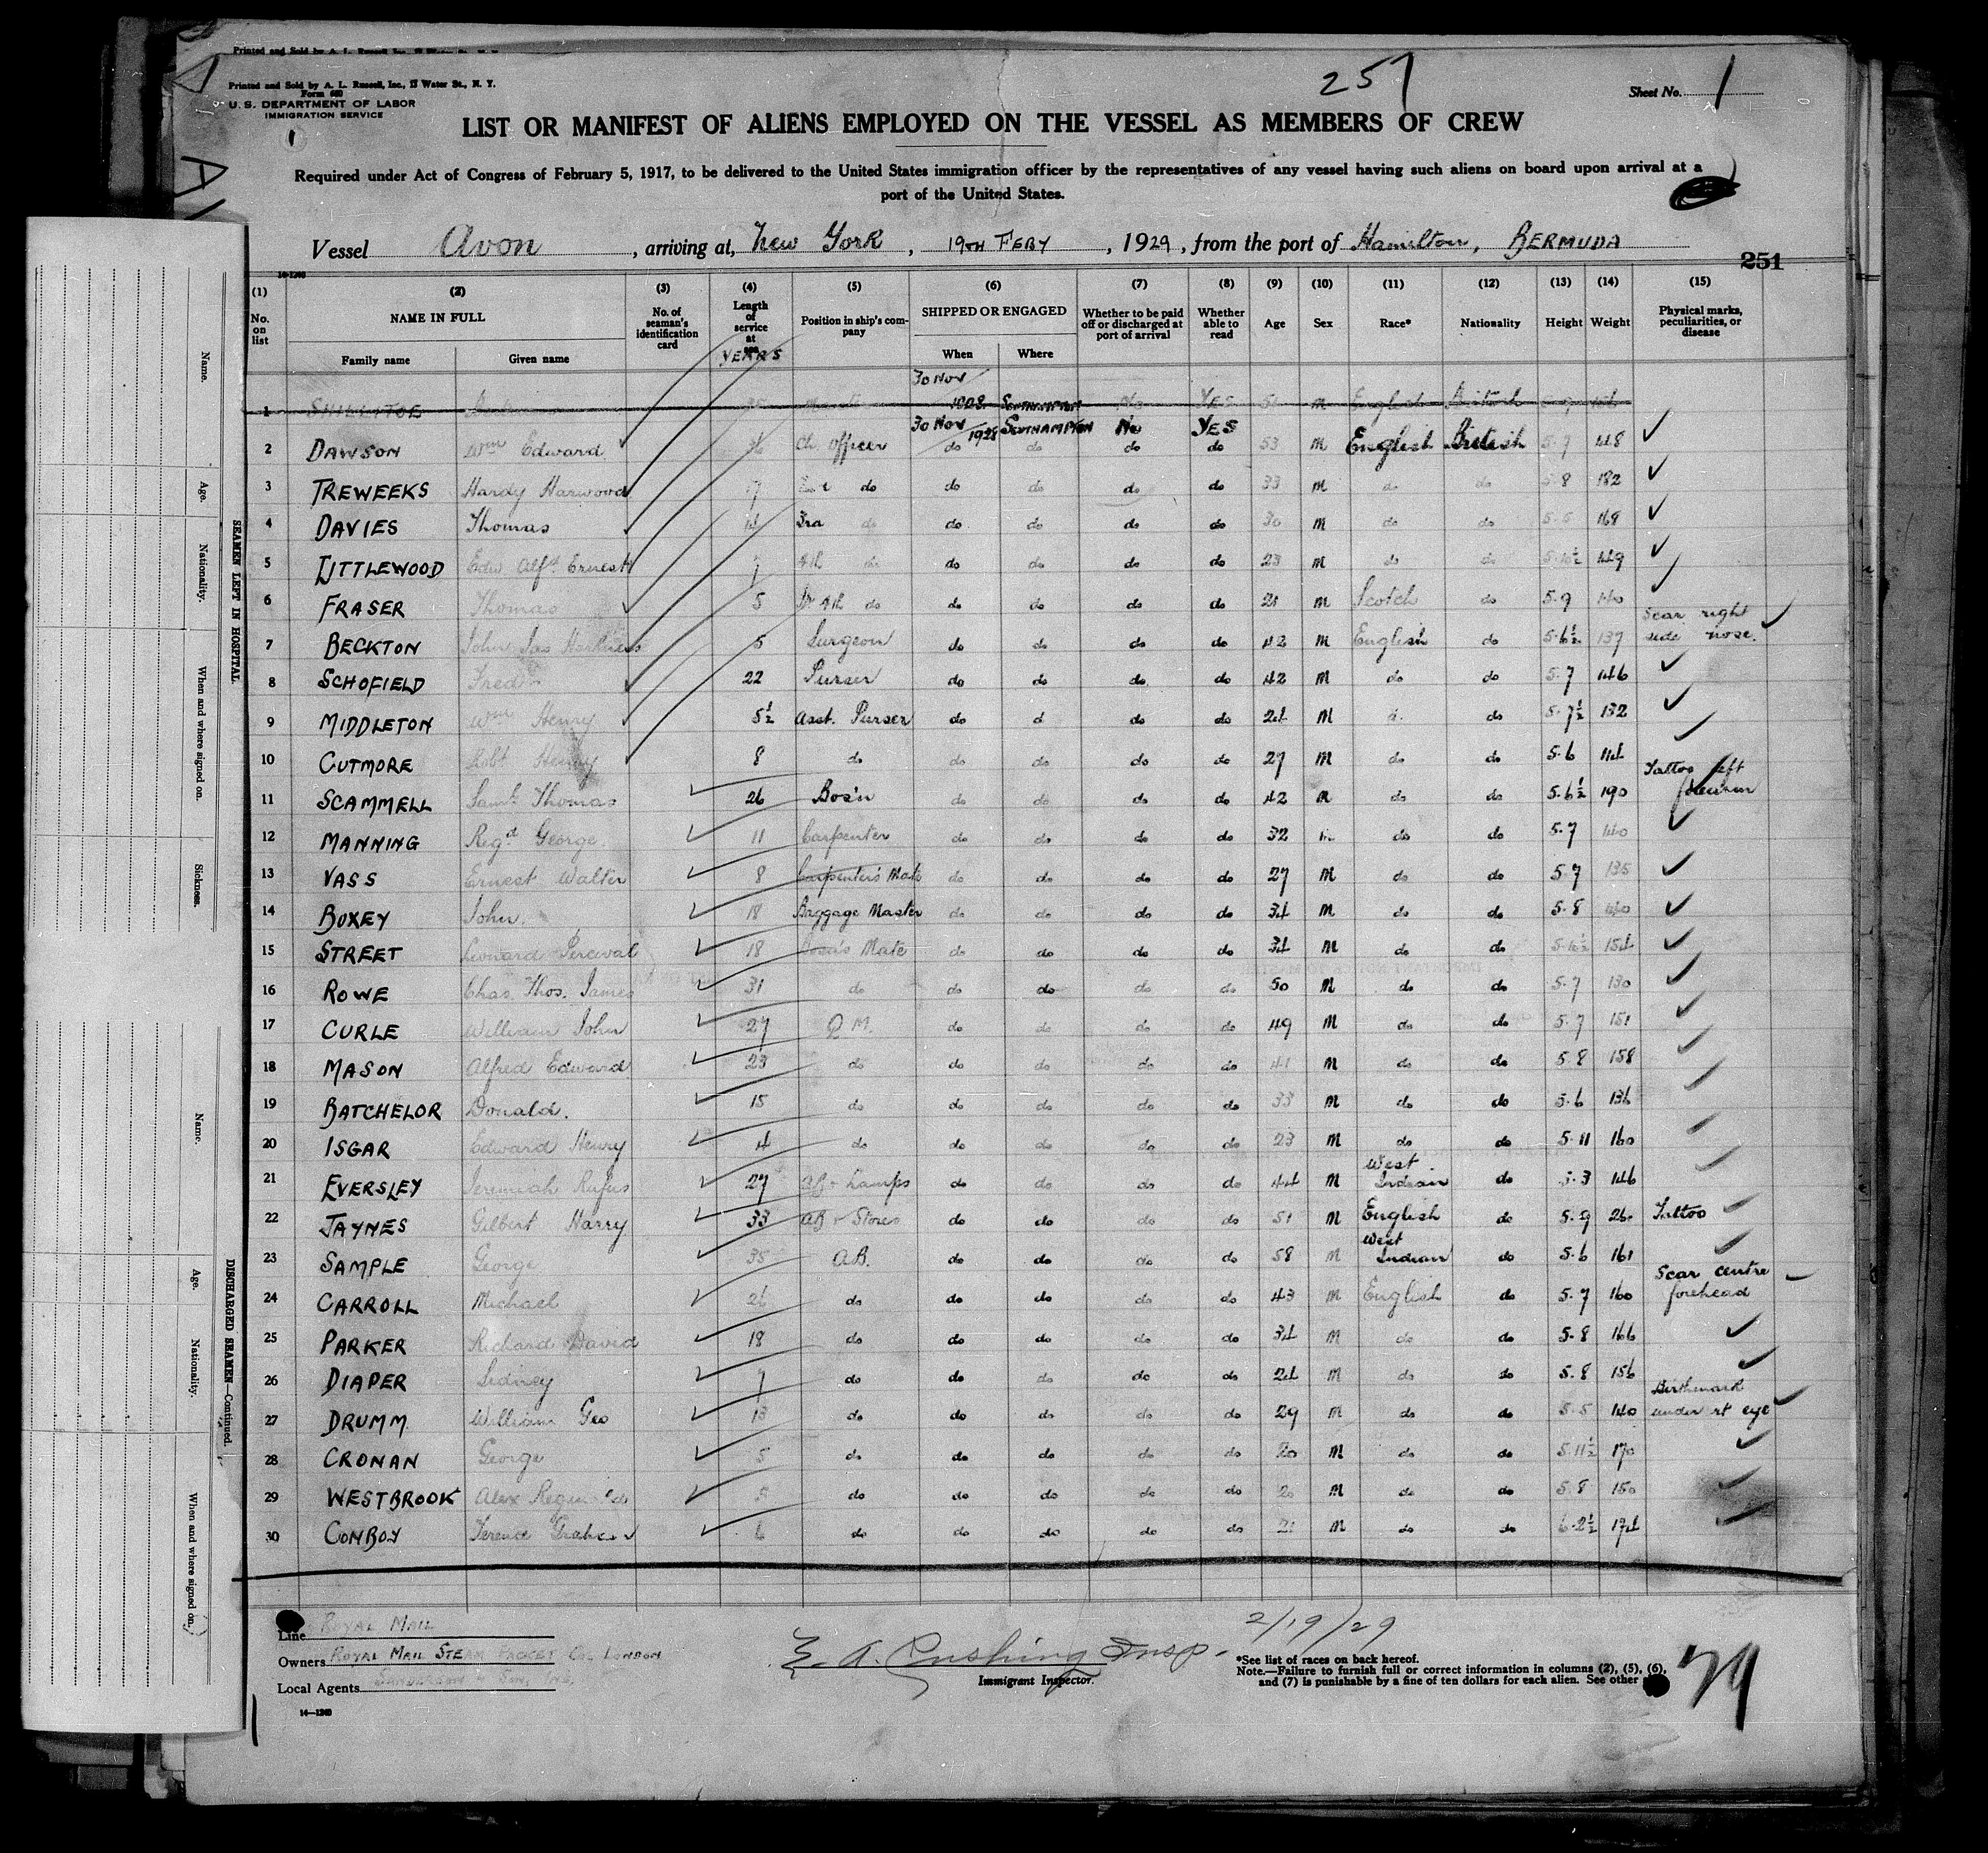 Printed and Sold by A. L. Russell, Inc., 17 Water St., N. Y.
Form 680
U. S. DEPARTMENT OF LABOR
IMMIGRATION SERVICE
1
257
Sheet No. 1
LIST OR MANIFEST OF ALIENS EMPLOYED ON THE VESSEL AS MEMBERS OF CREW
Required under Act of Congress of February 5, 1917, to be delivered to the United States immigration officer by the representatives of any vessel having such aliens on board upon arrival at a
port of the United States.
Vessel Avon, arriving at, New York, 19TH FEBY, 1929, from the port of Hamilton, BERMUDA
251
14-1240
(1) (2) (3) (4) (5) (6) (7) (8) (9) (10) (11) (12) (13) (14) (15)
No. on list NAME IN FULL No. of seaman's identification card Length of service at sea Position in ship's company SHIPPED OR ENGAGED Whether to be paid off or discharged at port of arrival Whether able to read Age Sex Race* Nationality Height Weight Physical marks, peculiarities, or disease
Family name Given name YEARS When Where
30 Nov
1 1928 SOUTHAMPTON No YES M English British
30 Nov 1928 SOUTHAMPTON No YES
2 DAWSON Wm Edward Ch Officer do do do do 53 M English British 5.7 148
3 TREWEEKS Hardy Harwood 2nd do do do do do 33 M do do 5.8 182
4 DAVIES Thomas 14 3rd do do do do do 30 M do do 5.5 168
5 LITTLEWOOD Edw Alfd Ernest 7 4th do do do do do 23 M do do 5.10½ 149
6 FRASER Thomas 5 Jr 4th do do do do do 21 M Scotch do 5.9 140
7 BECKTON John Jas Harkness 5 Surgeon do do do do 42 M English do 5.6½ 137 Scar right side nose.
8 SCHOFIELD Fredk 22 Purser do do do do 42 M do do 5.7 146
9 MIDDLETON Wm Henry 5½ Asst. Purser do d do do 24 M do do 5.7½ 132
10 CUTMORE Robt Henry 8 do do do do do 27 M do do 5.6 114
11 SCAMMELL Saml Thomas 26 Bos'n do do do do 42 M do do 5.6½ 190 Tattoo left forearm
12 MANNING Regd George 11 Carpenter do do do do 32 M do do 5.7 140
13 VASS Ernest Walter 8 Carpenter's Mate do do do do 27 M do do 5.7 135
14 BOXEY John. 18 Baggage Master do do do do 34 M do do 5.8 140
15 STREET Leonard Percival 18 Bosn's Mate do do do do 34 M do do 5.10½ 154
16 ROWE Chas. Thos. James 31 do do do do do 50 M do do 5.7 130
17 CURLE William John 27 Q.M. do do do do 49 M do do 5.7 151
18 MASON Alfred Edward 23 do do do do do 41 M do do 5.8 158
19 BATCHELOR Donald. 15 do do do do do 33 M do do 5.6 136
20 ISGAR Edward Henry 4 do do do do do 23 M do do 5.11 160
21 EVERSLEY Jeremiah Rufus 27 AB & Lamps do do do do 44 M West Indian do 5.3 146
22 JAYNES Gilbert Harry 33 AB & Stores do do do do 51 M English do 5.9 Tattoo
23 SAMPLE George 35 A.B. do do do do 58 M West Indian do 5.6 161
24 CARROLL Michael 26 do do do do do 43 M English do 5.7 160 Scar centre forehead
25 PARKER Richard David 18 do do do do do 34 M do do 5.8 166
26 DIAPER Sidney 7 do do do do do 24 M do do 5.8 156
27 DRUMM. William Geo 13 do do do do do 29 M do do 5.5 140 Birthmark under rt eye
28 CRONAN George 5 do do do do do 20 M do do 5.11½ 170
29 WESTBROOK Alex 5 do do do do do 20 M do do 5.8 150
30 CONBOY Terence Graham 6 do do do do do 21 M do do 6.2½ 174
Line ROYAL MAIL
Owners ROYAL MAIL STEAM PACKET CO. LONDON
Local Agents SANDERSON & SON, INC.
E. A. Cushing Insp.
Immigrant Inspector.
2/19/29
*See list of races on back hereof.
Note.—Failure to furnish full or correct information in columns (2), (5), (6),
and (7) is punishable by a fine of ten dollars for each alien. See other
14—1240
SEAMEN LEFT IN HOSPITAL.
Name. Age. Nationality. When and where signed on. Sickness.
DISCHARGED SEAMEN—Continued.
Name. Age. Nationality. When and where signed on.